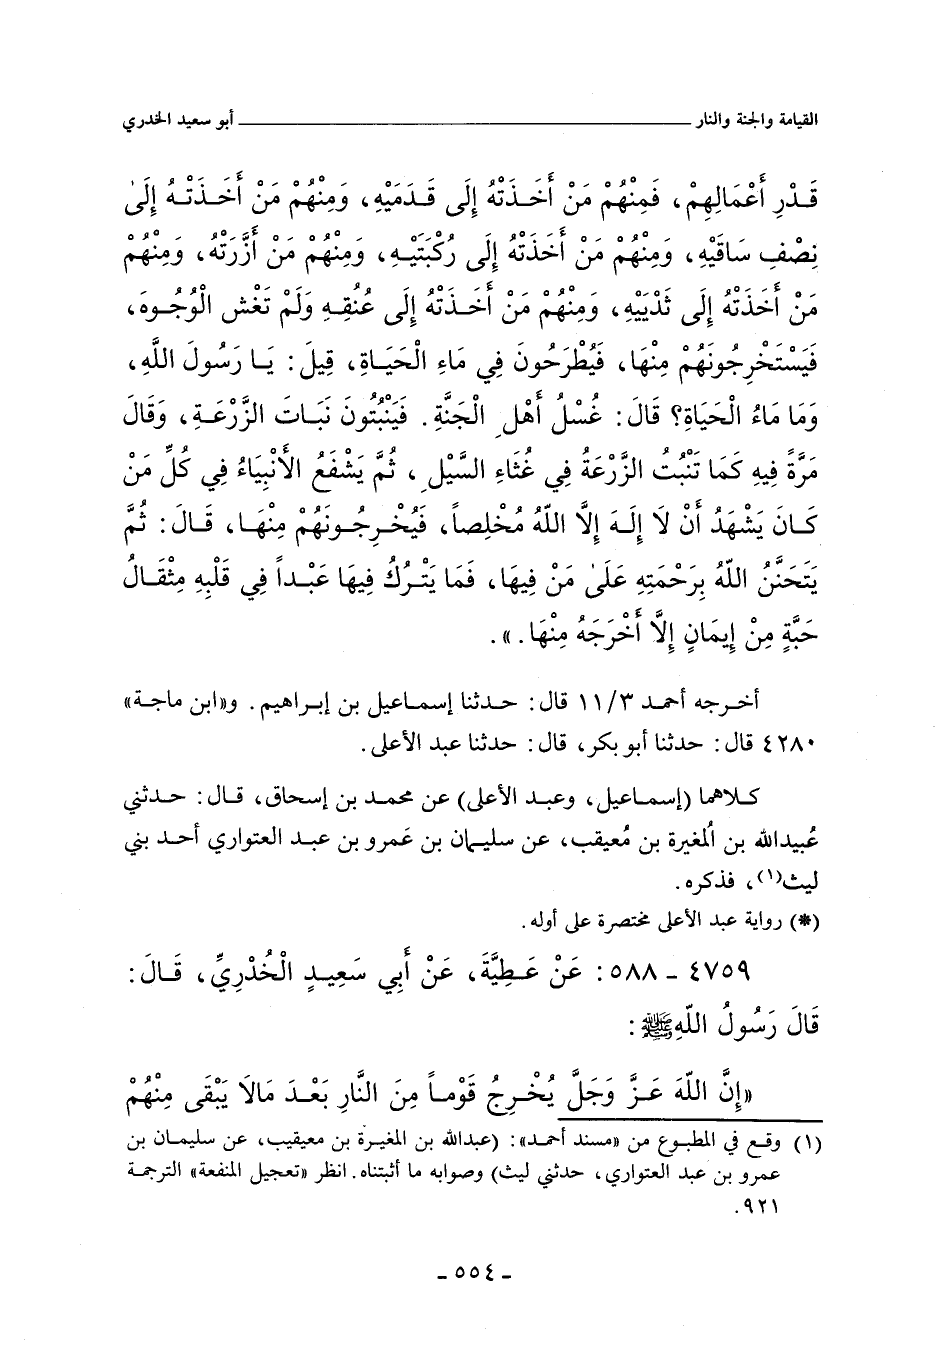 القيامة والجنة والنار ــــــــــــــــــــ أبو سعيد الخدري
قَدْرِ أَعْمَالِهِمْ، فَمِنْهُمْ مَنْ أَخَذَتْهُ إِلَى قَدَمَيْهِ، وَمِنْهُمْ مَنْ أَخَذَتْهُ إِلَىٰ
نِصْفِ سَاقَيْهِ، وَمِنْهُمْ مَنْ أَخَذَتْهُ إِلَى رُكْبَتَيْهِ، وَمِنْهُمْ مَنْ أَزَّرَتْهُ، وَمِنْهُمْ
مَنْ أَخَذَتْهُ إِلَى ثَدْيَيْهِ، وَمِنْهُمْ مَنْ أَخَذَتْهُ إِلَى عُنُقِهِ وَلَمْ تَغْشَ الْوُجُوهَ،
فَيَسْتَخْرِجُونَهُمْ مِنْهَا، فَيُطْرَحُونَ فِي مَاءِ الْحَيَاةِ، قِيلَ: يَا رَسُولَ اللَّهِ،
وَمَا مَاءُ الْحَيَاةِ؟ قَالَ: غُسْلُ أَهْلِ الْجَنَّةِ. فَيَنْبُتُونَ نَبَاتَ الزَّرْعَةِ، وَقَالَ
مَرَّةً فِيهِ كَمَا تَنْبُتُ الزَّرْعَةُ فِي غُثَاءِ السَّيْلِ، ثُمَّ يَشْفَعُ الأَنْبِيَاءُ فِي كُلِّ مَنْ
كَانَ يَشْهَدُ أَنْ لَا إِلَهَ إِلَّا اللَّهُ مُخْلِصاً، فَيُخْرِجُونَهُمْ مِنْهَا، قَالَ: ثُمَّ
يَتَحَنَّنُ اللَّهُ بِرَحْمَتِهِ عَلَىٰ مَنْ فِيهَا، فَمَا يَتْرُكُ فِيهَا عَبْداً فِي قَلْبِهِ مِثْقَالُ
حَبَّةٍ مِنْ إِيمَانٍ إِلَّا أَخْرَجَهُ مِنْهَا.».
أخرجه أحمد ١١/٣ قال: حدثنا إسماعيل بن إبراهيم. و«ابن ماجة»
٤٢٨٠ قال: حدثنا أبو بكر، قال: حدثنا عبد الأعلى.
كلاهما (إسماعيل، وعبد الأعلى) عن محمد بن إسحاق، قال: حدثني
عُبيدالله بن المُغيرة بن مُعيقب، عن سليمان بن عَمرو بن عبد العتواري أحد بني
ليث(١)، فذكره.
(*) رواية عبد الأعلى مختصرة على أوله.
٤٧٥٩ - ٥٨٨: عَنْ عَطِيَّةَ، عَنْ أَبِي سَعِيدٍ الْخُدْرِيِّ، قَالَ:
قَالَ رَسُولُ اللَّهِ ﷺ:
«إِنَّ اللَّهَ عَزَّ وَجَلَّ يُخْرِجُ قَوْماً مِنَ النَّارِ بَعْدَ مَالَا يَبْقَى مِنْهُمْ
(١) وقع في المطبوع من «مسند أحمد»: (عبدالله بن المغيرة بن معيقيب، عن سليمان بن
عمرو بن عبد العتواري، حدثني ليث) وصوابه ما أثبتناه. انظر «تعجيل المنفعة» الترجمة
٩٢١.
- ٥٥٤ -